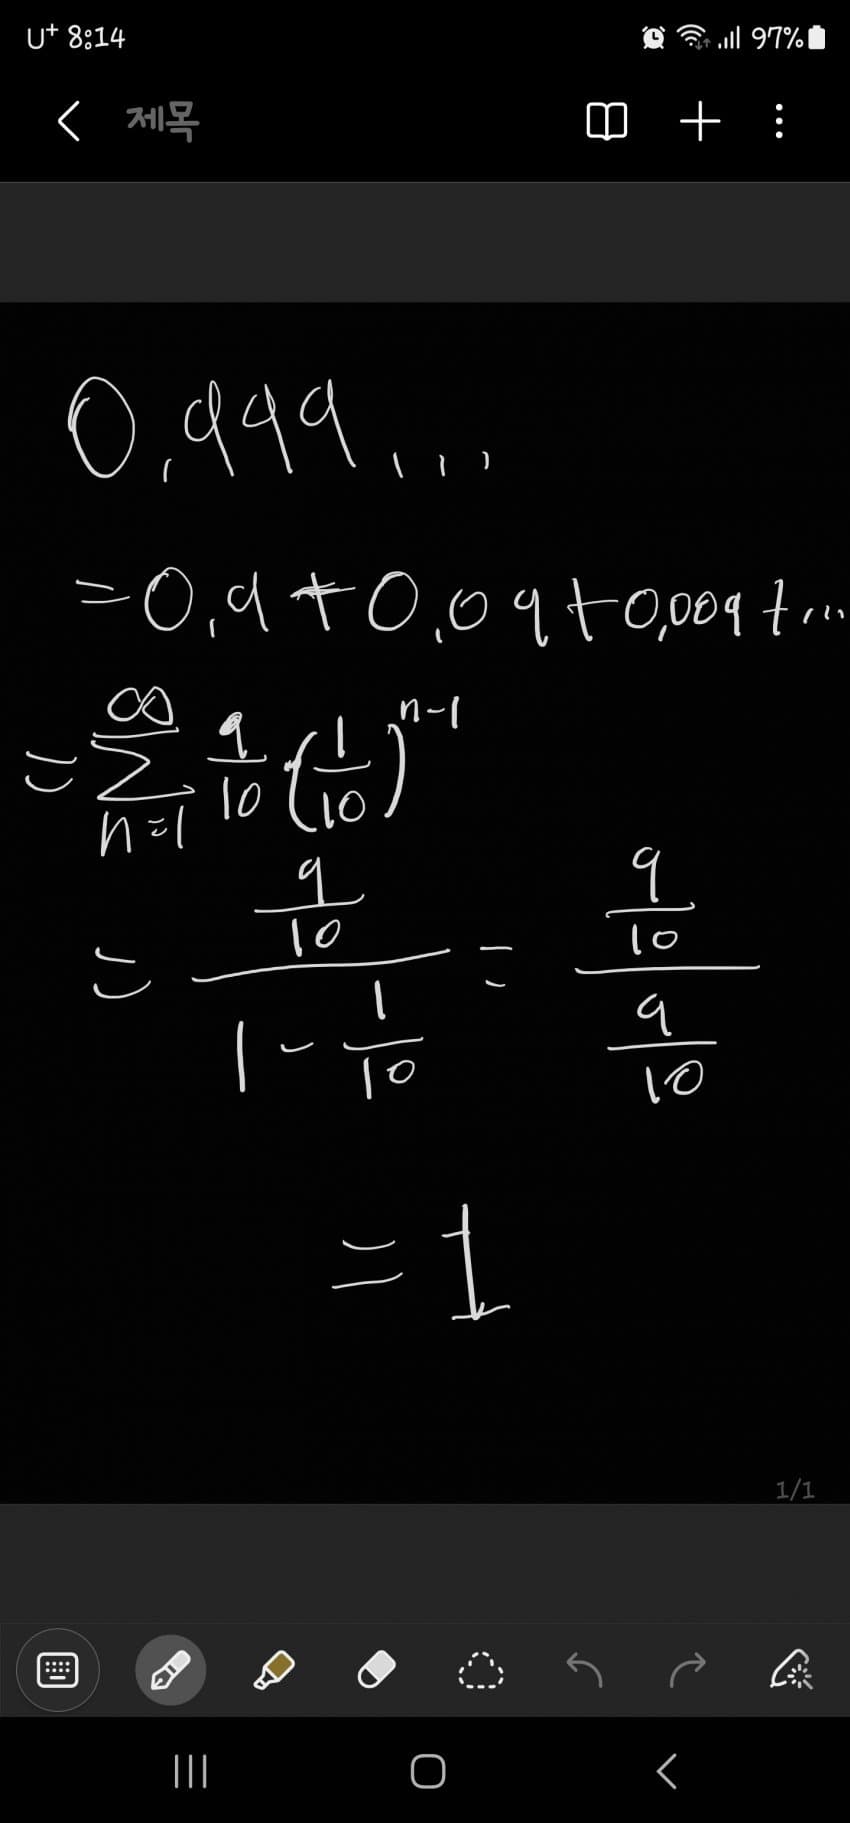 U+ 8:14 97%
제목
0.999...
=0.9+0.09+0.009+...
=∑_{n=1}^{∞} 9/10 (1/10)^{n-1}
= (9/10)/(1-1/10) = (9/10)/(9/10)
=1
1/1